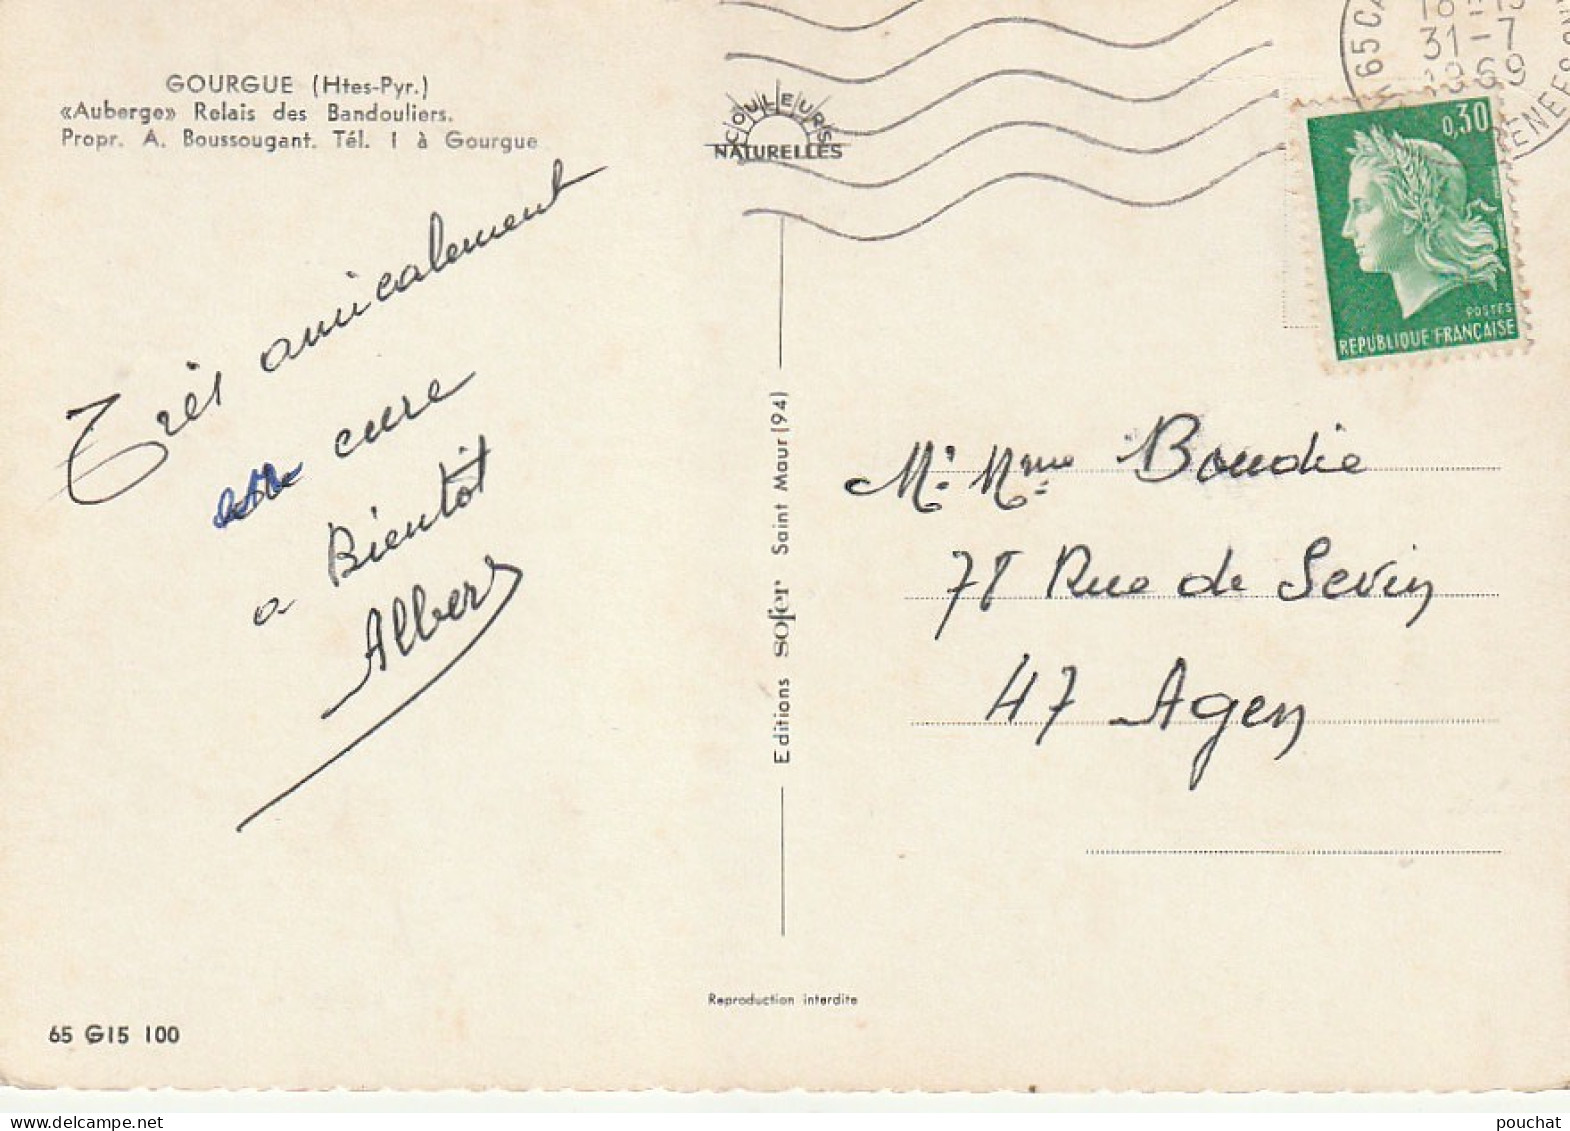 GOURGUE (Htes-Pyr.)
«Auberge» Relais des Bandouliers.
Propr. A. Boussougant. Tél. 1 à Gourgue
Très amicalement
cure
a Bientôt
Albert
COULEURS
NATURELLES
Editions sofer Saint Maur (94)
65 CA
31-7
1969
ENEES
0,30
POSTES
REPUBLIQUE FRANÇAISE
Mr. Mme Boudie
78 Rue de Sevin
47 Agen
Reproduction interdite
65 G15 100
pouchat